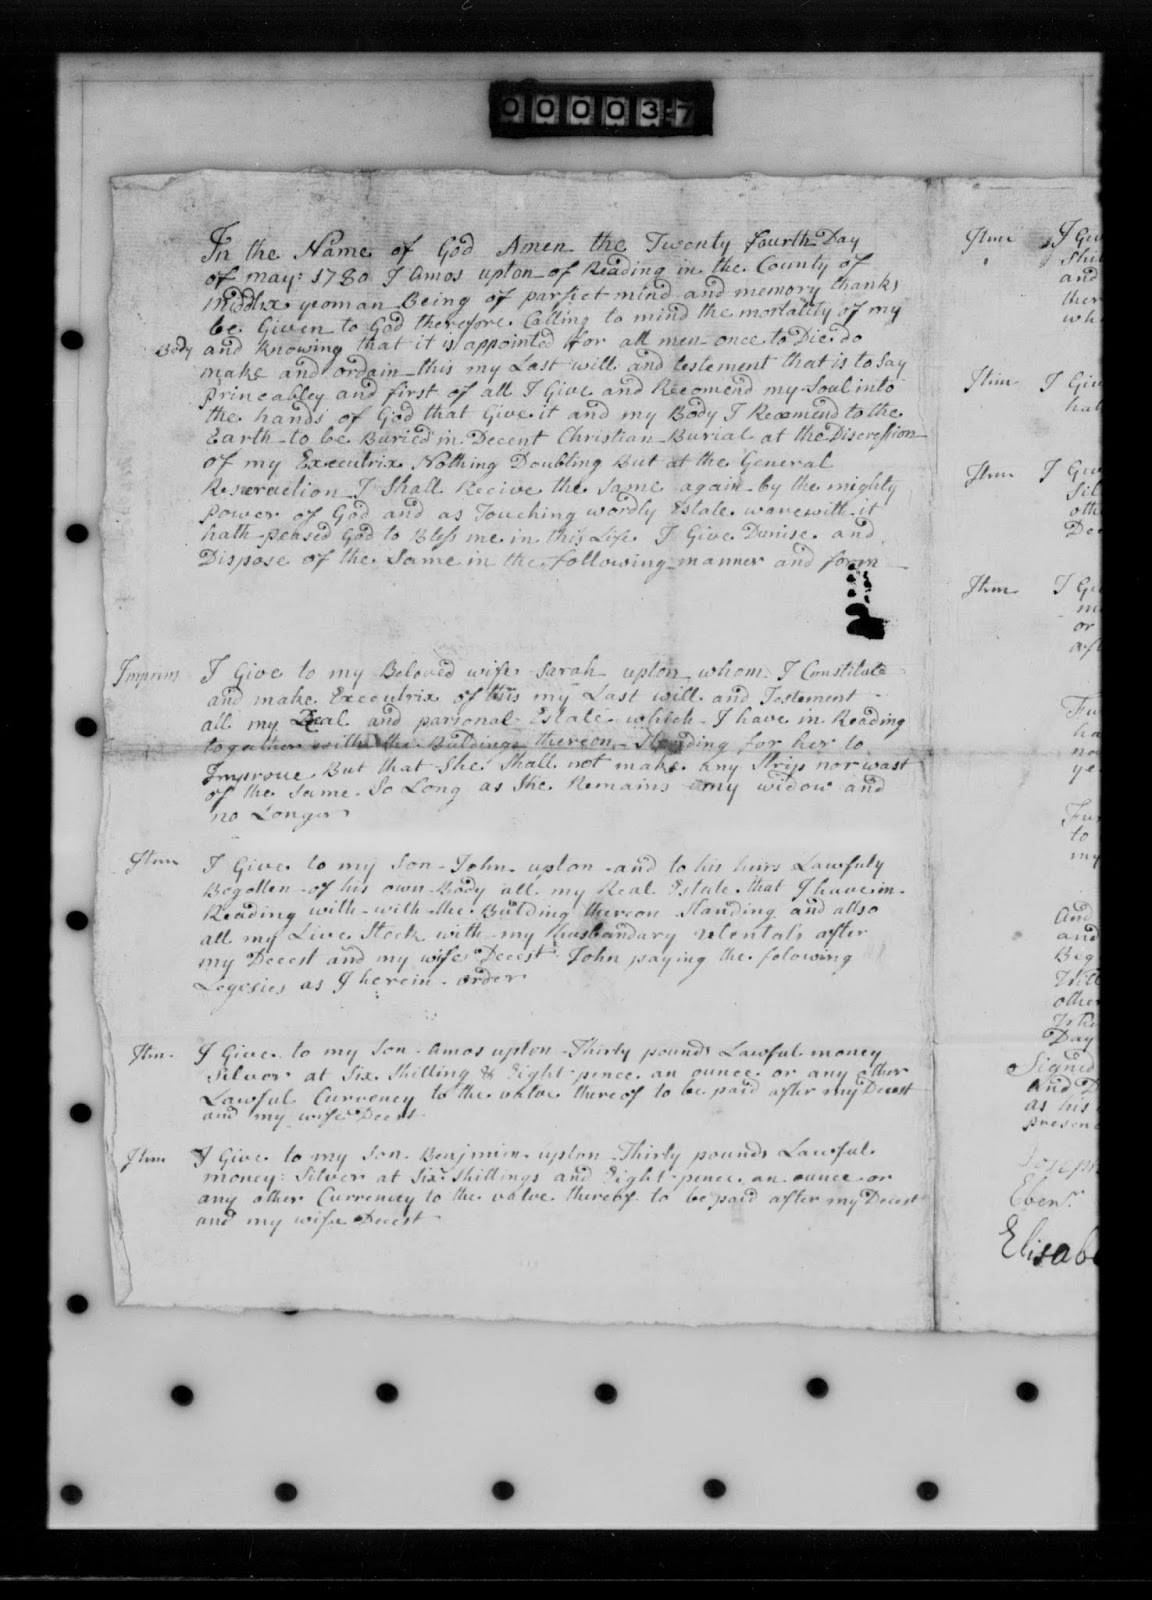 000037
In the Name of God Amen the Twenty fourth Day
of may: 1780 I Amos upton of Reading in the County of
middlx yeoman Being of parfict mind and memory thanks
be Given to God therefore Calling to mind the mortality of my
Body and knowing that it is appointed for all men once to Die do
make and ordain this my Last will and testement that is to Say
princabley and first of all I Give and Recomend my Soul into
the hands of God that Give it and my Body I Recomend to the
Earth to be Buried in Decent Christian Burial at the Discression
of my Executrix Nothing Doubting But at the General
Resurraction I Shall Recive the Same again by the mighty
power of God and as Touching wordly Estate wherewith it
hath pleased God to Bless me in this Life I Give Demise and
Dispose of the Same in the following manner and form
Imprim I Give to my Beloved wife Sarah upton whom I Constitute
and make Executrix of this my Last will and Testement
all my Real and parsonal Estate which I have in Reading
together with the Buildings thereon Standing for her to
Improve But that She Shall not make any Strip nor wast
of the Same So Long as She Remains my widow and
no Longer
Itm I Give to my Son John upton and to his heirs Lawfuly
Begotten of his own Body all my Real Estate that I have in
Reading with with the Building thereon Standing and allso
all my Live Stock with my husbandary utentals after
my Decest and my wifes Decest John paying the folowing
Legesies as I herein order
Itm I Give to my Son Amos upton Thirty pounds Lawful money
Silver at Six Shilling & Eight pence an ounce or any other
Lawful Currency to the value thereof to be paid after my Decest
and my wife Decest
Itm I Give to my Son Benjmin upton Thirty pounds Lawful
money Silver at Six Shillings and Eight pence an ounce or
any other Currency to the value thereof to be paid after my Decest
and my wife Decest
Itm I Giv
and
ther
Itm I Giv
hat
Itm I Giv
Silv
oth
Dec
Itm I Gi
or
aft
Fu
ha
ye
Fur
to
my
And
and
Beg
other
Day
Signed
And D
as his
presenc
Joseph
Ebenr
Elisabe